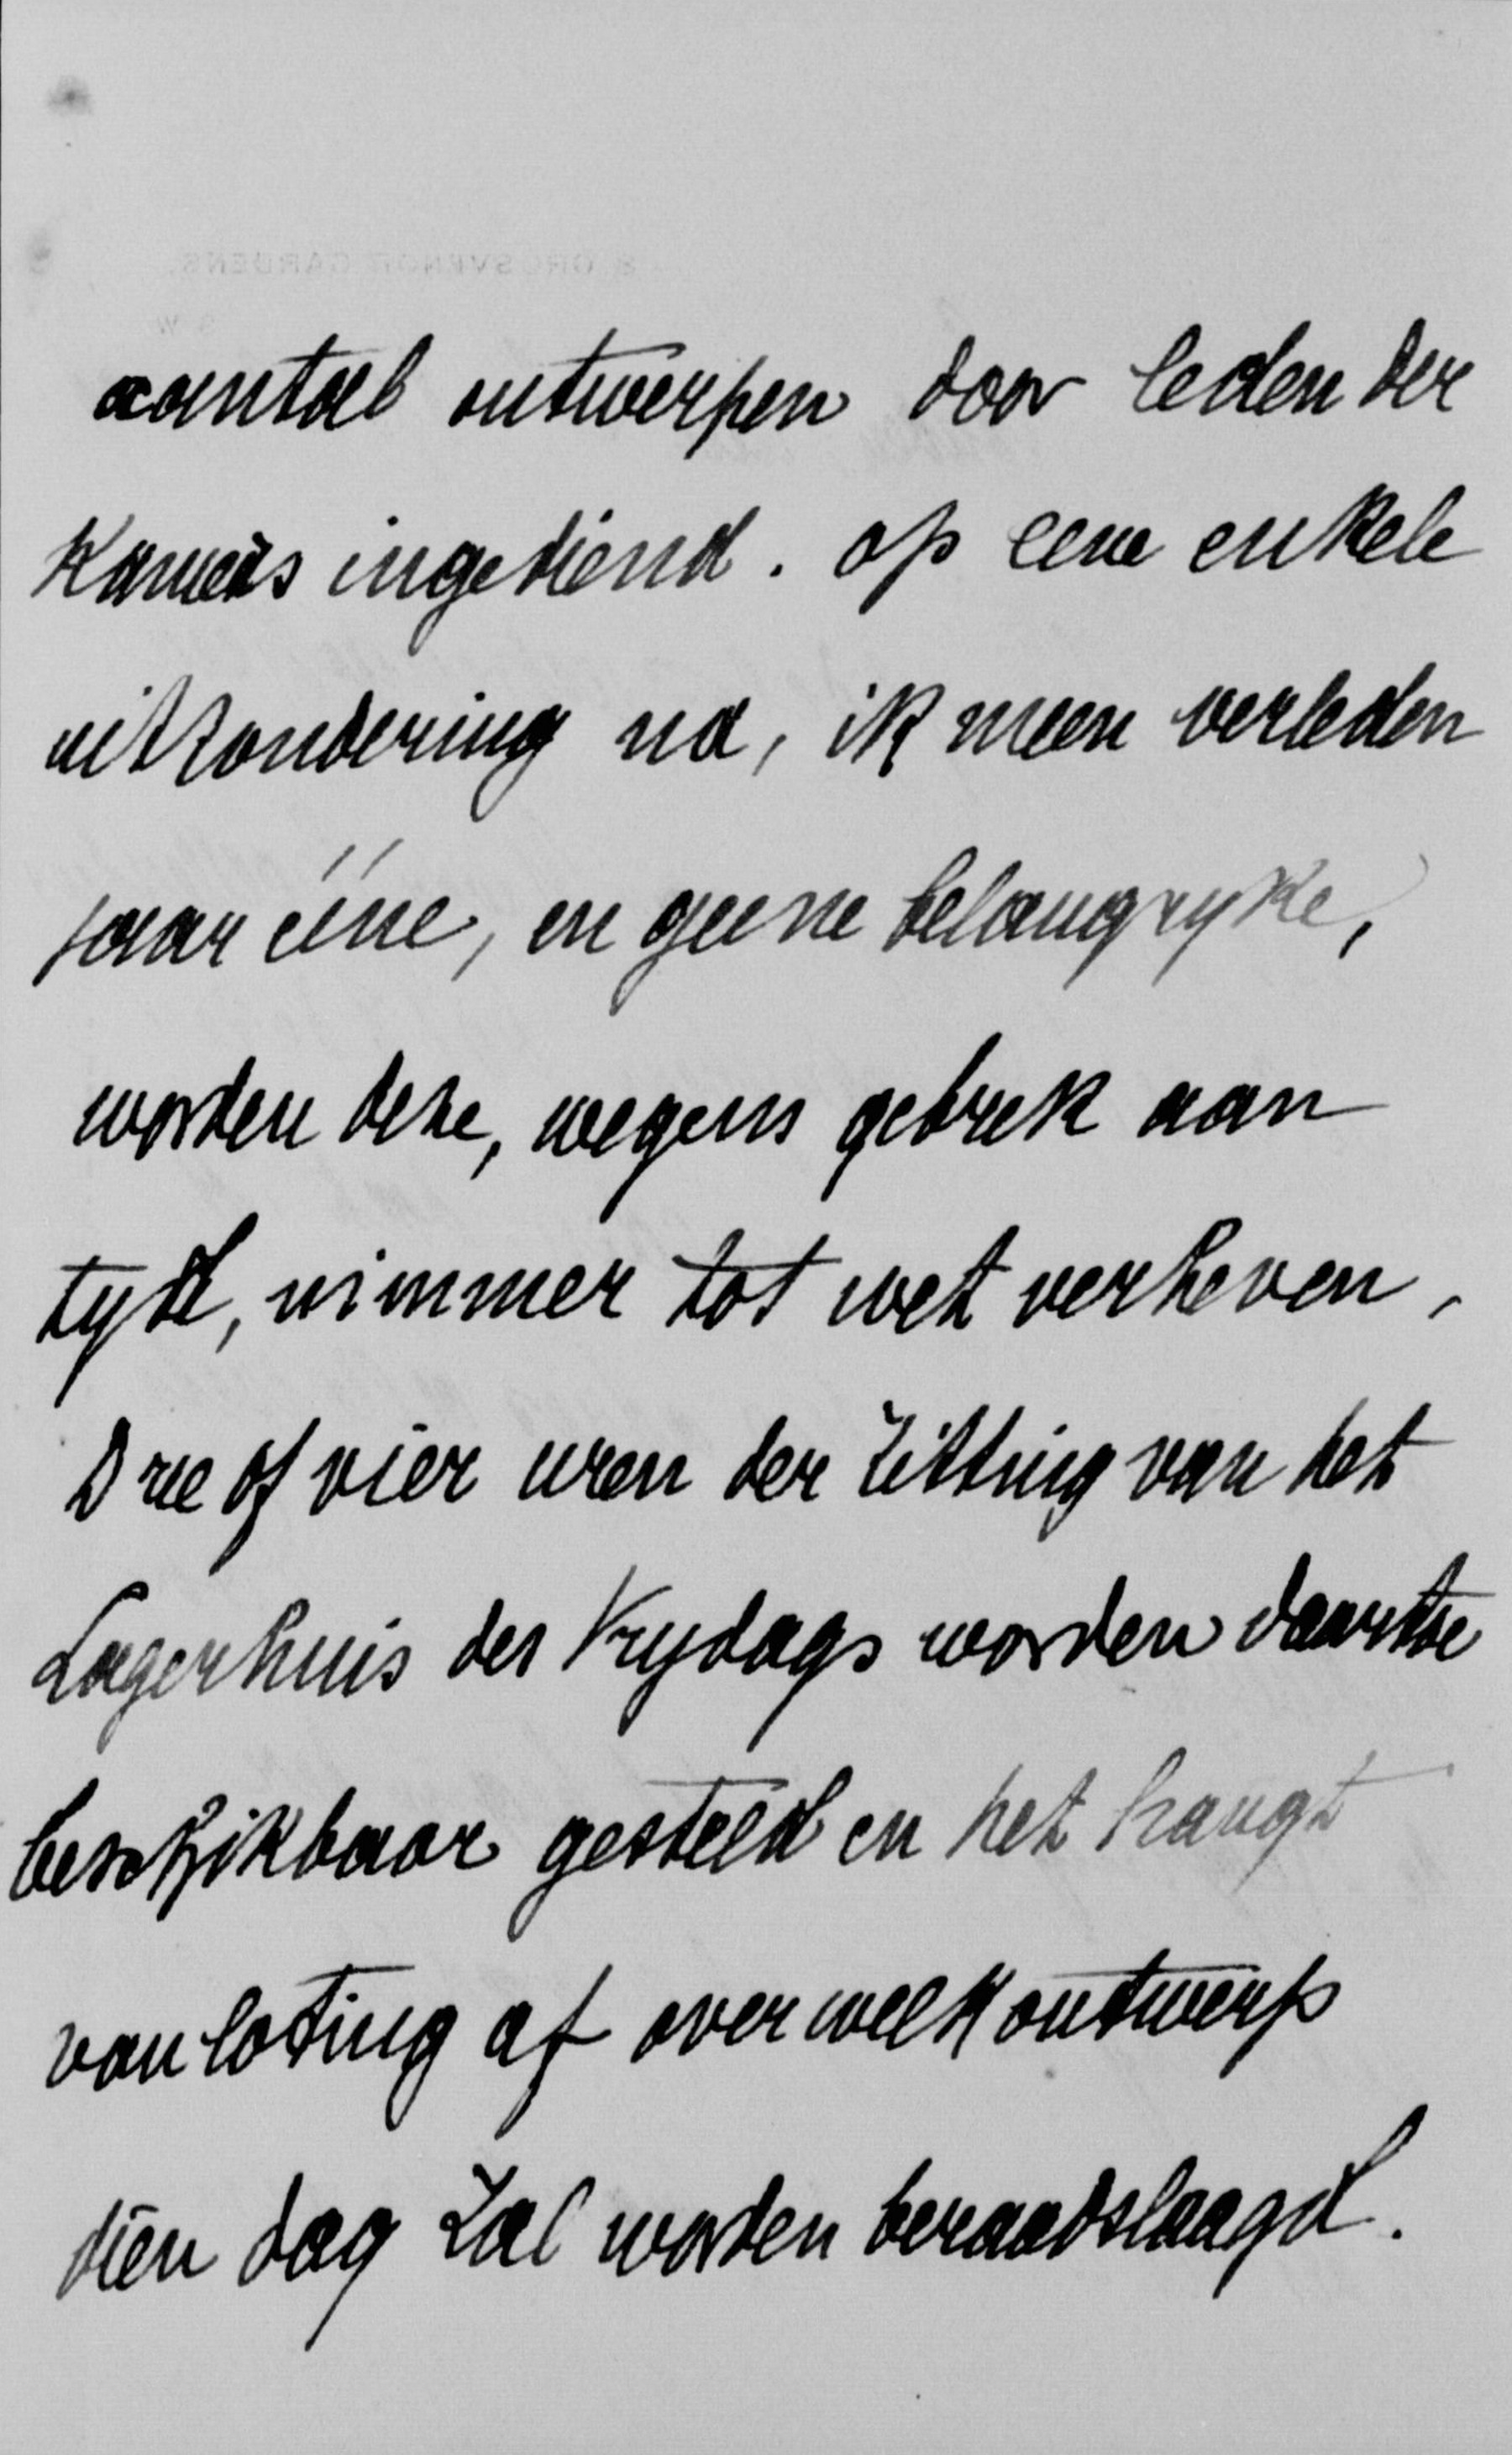 aantal ontwerpen door leden der
Kamers ingediend. op eene enkele
uitzondering na, ik meen verleden
jaar ééne, en geene belangryke,
worden deze, wegens gebrek aan
tyd, nimmer tot wet verheven.
Drie of vier uren der zitting van het
Lagerhuis des Vrydags worden daartoe
beschikbaar gesteld en het hangt
van loting af over welk ontwerp
dien dag zal worden beraadslaagd.